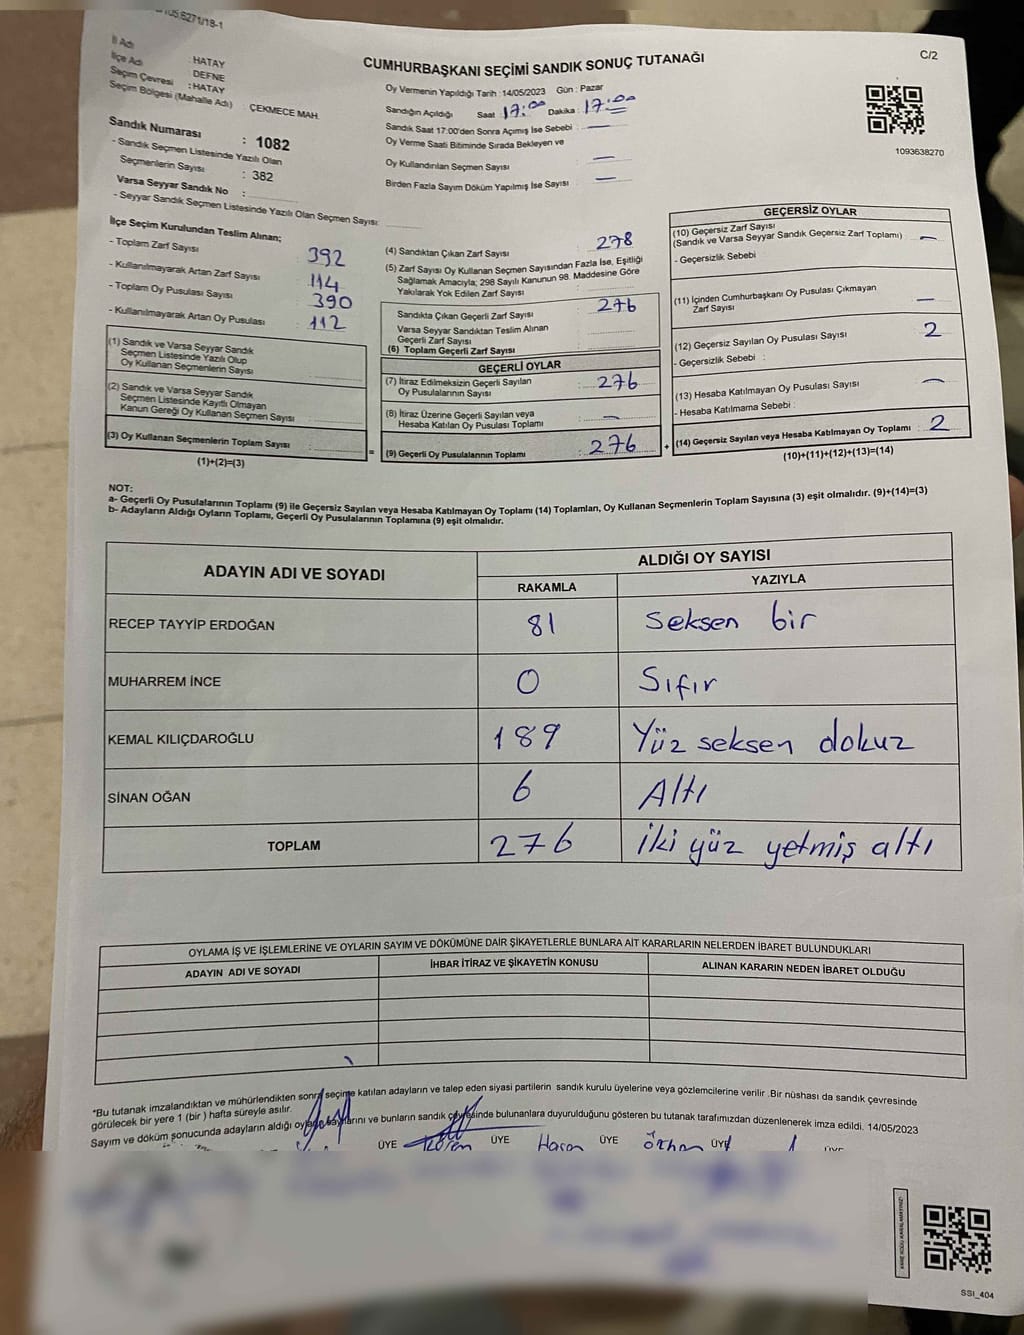 CUMHURBAŞKANI SEÇİMİ SANDIK SONUÇ TUTANAĞI
C/2
İl Adı : HATAY
İlçe Adı : DEFNE
Seçim Çevresi : HATAY
Seçim Bölgesi (Mahalle Adı) : ÇEKMECE MAH.
Sandık Numarası : 1082
- Sandık Seçmen Listesinde Yazılı Olan
Seçmenlerin Sayısı : 382
Varsa Seyyar Sandık No :
- Seyyar Sandık Seçmen Listesinde Yazılı Olan Seçmen Sayısı:
Oy Vermenin Yapıldığı Tarih : 14/05/2023 Gün : Pazar
Sandığın Açıldığı Saat : 17:00 Dakika : 17:00
Sandık Saat 17:00'den Sonra Açımış İse Sebebi : —
Oy Verme Saati Bitiminde Sırada Bekleyen ve
Oy Kullandırılan Seçmen Sayısı —
Birden Fazla Sayım Döküm Yapılmış İse Sayısı —
1093638270
İlçe Seçim Kurulundan Teslim Alınan;
- Toplam Zarf Sayısı : 392
- Kullanılmayarak Artan Zarf Sayısı : 114
- Toplam Oy Pusulası Sayısı : 390
- Kullanılmayarak Artan Oy Pusulası : 112
(1) Sandık ve Varsa Seyyar Sandık
Seçmen Listesinde Yazılı Olup
Oy Kullanan Seçmenlerin Sayısı :
(2) Sandık ve Varsa Seyyar Sandık
Seçmen Listesinde Kayıtlı Olmayan
Kanun Gereği Oy Kullanan Seçmen Sayısı :
(3) Oy Kullanan Seçmenlerin Toplam Sayısı :
(1)+(2)=(3)
(4) Sandıktan Çıkan Zarf Sayısı : 278
(5) Zarf Sayısı Oy Kullanan Seçmen Sayısından Fazla İse, Eşitliği
Sağlamak Amacıyla; 298 Sayılı Kanunun 98. Maddesine Göre
Yakılarak Yok Edilen Zarf Sayısı :
Sandıkta Çıkan Geçerli Zarf Sayısı : 276
Varsa Seyyar Sandıktan Teslim Alınan
Geçerli Zarf Sayısı
(6) Toplam Geçerli Zarf Sayısı
GEÇERLİ OYLAR
(7) İtiraz Edilmeksizin Geçerli Sayılan
Oy Pusulalarının Sayısı : 276
(8) İtiraz Üzerine Geçerli Sayılan veya
Hesaba Katılan Oy Pusulası Toplamı : —
= (9) Geçerli Oy Pusulalarının Toplamı : 276 +
GEÇERSİZ OYLAR
(10) Geçersiz Zarf Sayısı
(Sandık ve Varsa Seyyar Sandık Geçersiz Zarf Toplamı) : —
- Geçersizlik Sebebi
(11) İçinden Cumhurbaşkanı Oy Pusulası Çıkmayan
Zarf Sayısı : —
(12) Geçersiz Sayılan Oy Pusulası Sayısı : 2
- Geçersizlik Sebebi :
(13) Hesaba Katılmayan Oy Pusulası Sayısı : —
- Hesaba Katılmama Sebebi :
(14) Geçersiz Sayılan veya Hesaba Katılmayan Oy Toplamı : 2
(10)+(11)+(12)+(13)=(14)
NOT:
a- Geçerli Oy Pusulalarının Toplamı (9) ile Geçersiz Sayılan veya Hesaba Katılmayan Oy Toplamı (14) Toplamları, Oy Kullanan Seçmenlerin Toplam Sayısına (3) eşit olmalıdır. (9)+(14)=(3)
b- Adayların Aldığı Oyların Toplamı, Geçerli Oy Pusulalarının Toplamına (9) eşit olmalıdır.
ADAYIN ADI VE SOYADI ALDIĞI OY SAYISI
RAKAMLA YAZIYLA
RECEP TAYYİP ERDOĞAN 81 Seksen bir
MUHARREM İNCE 0 Sıfır
KEMAL KILIÇDAROĞLU 189 Yüz seksen dokuz
SİNAN OĞAN 6 Altı
TOPLAM 276 İki yüz yetmiş altı
OYLAMA İŞ VE İŞLEMLERİNE VE OYLARIN SAYIM VE DÖKÜMÜNE DAİR ŞİKAYETLERLE BUNLARA AİT KARARLARIN NELERDEN İBARET BULUNDUKLARI
ADAYIN ADI VE SOYADI İHBAR İTİRAZ VE ŞİKAYETİN KONUSU ALINAN KARARIN NEDEN İBARET OLDUĞU
*Bu tutanak imzalandıktan ve mühürlendikten sonra seçime katılan adayların ve talep eden siyasi partilerin sandık kurulu üyelerine veya gözlemcilerine verilir .Bir nüshası da sandık çevresinde
görülecek bir yere 1 (bir ) hafta süreyle asılır.
Sayım ve döküm sonucunda adayların aldığı oyların sayılarını ve bunların sandık çevresinde bulunanlara duyurulduğunu gösteren bu tutanak tarafımızdan düzenlenerek imza edildi. 14/05/2023
ÜYE ÜYE Hasan ÜYE Orhan ÜYE ÜYE
SSI_404